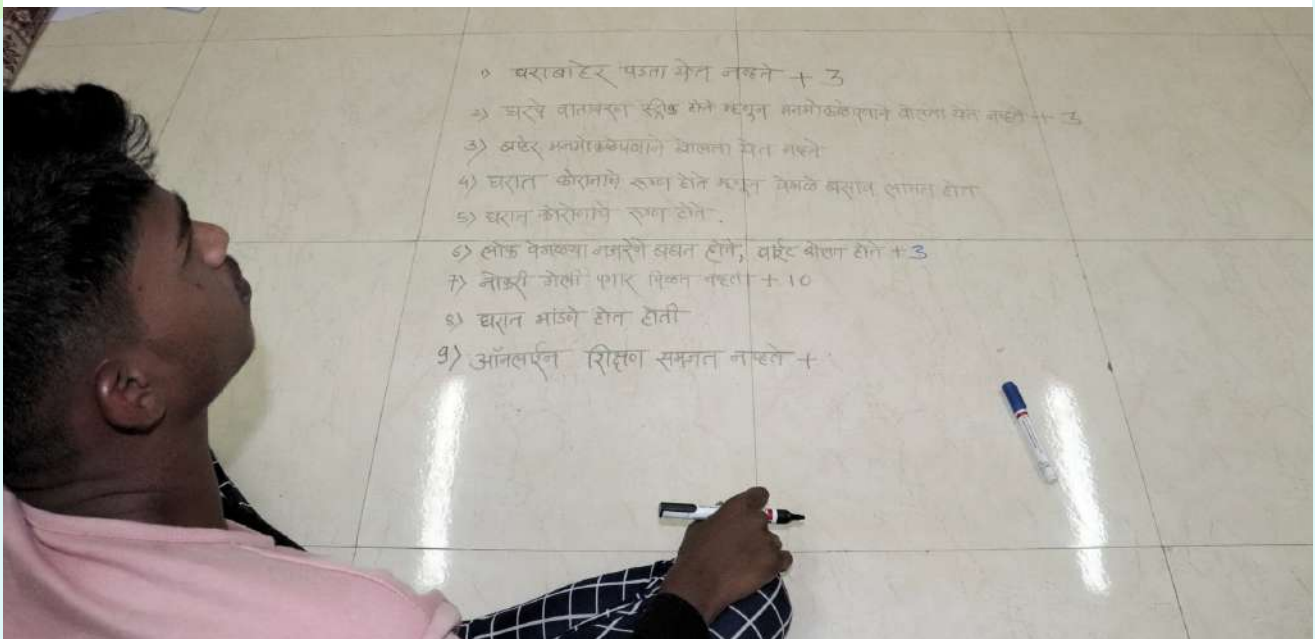 १) घराबाहेर पडता येत नव्हते + 3
2) घरचे वातावरण स्ट्रीक्ट होते म्हणून मनमोकळेपणाने बोलता येत नव्हते + 3
3) बाहेर मनमोकळेपणाने खेळता येत नव्हते
4) घरात कोरोनाचे रूग्ण होते म्हणून वेगळे बसाव लागत होत
5) घरात कोरोनाचे रूग्ण होते.
6) लोक वेगळ्या नजरेने बघत होते, वाईट बोलत होते + 3
7) नोकरी गेली पगार मिळत नव्हता + 10
8) घरात भांडणे होत होती
9) ऑनलाईन शिक्षण समजत नव्हते +